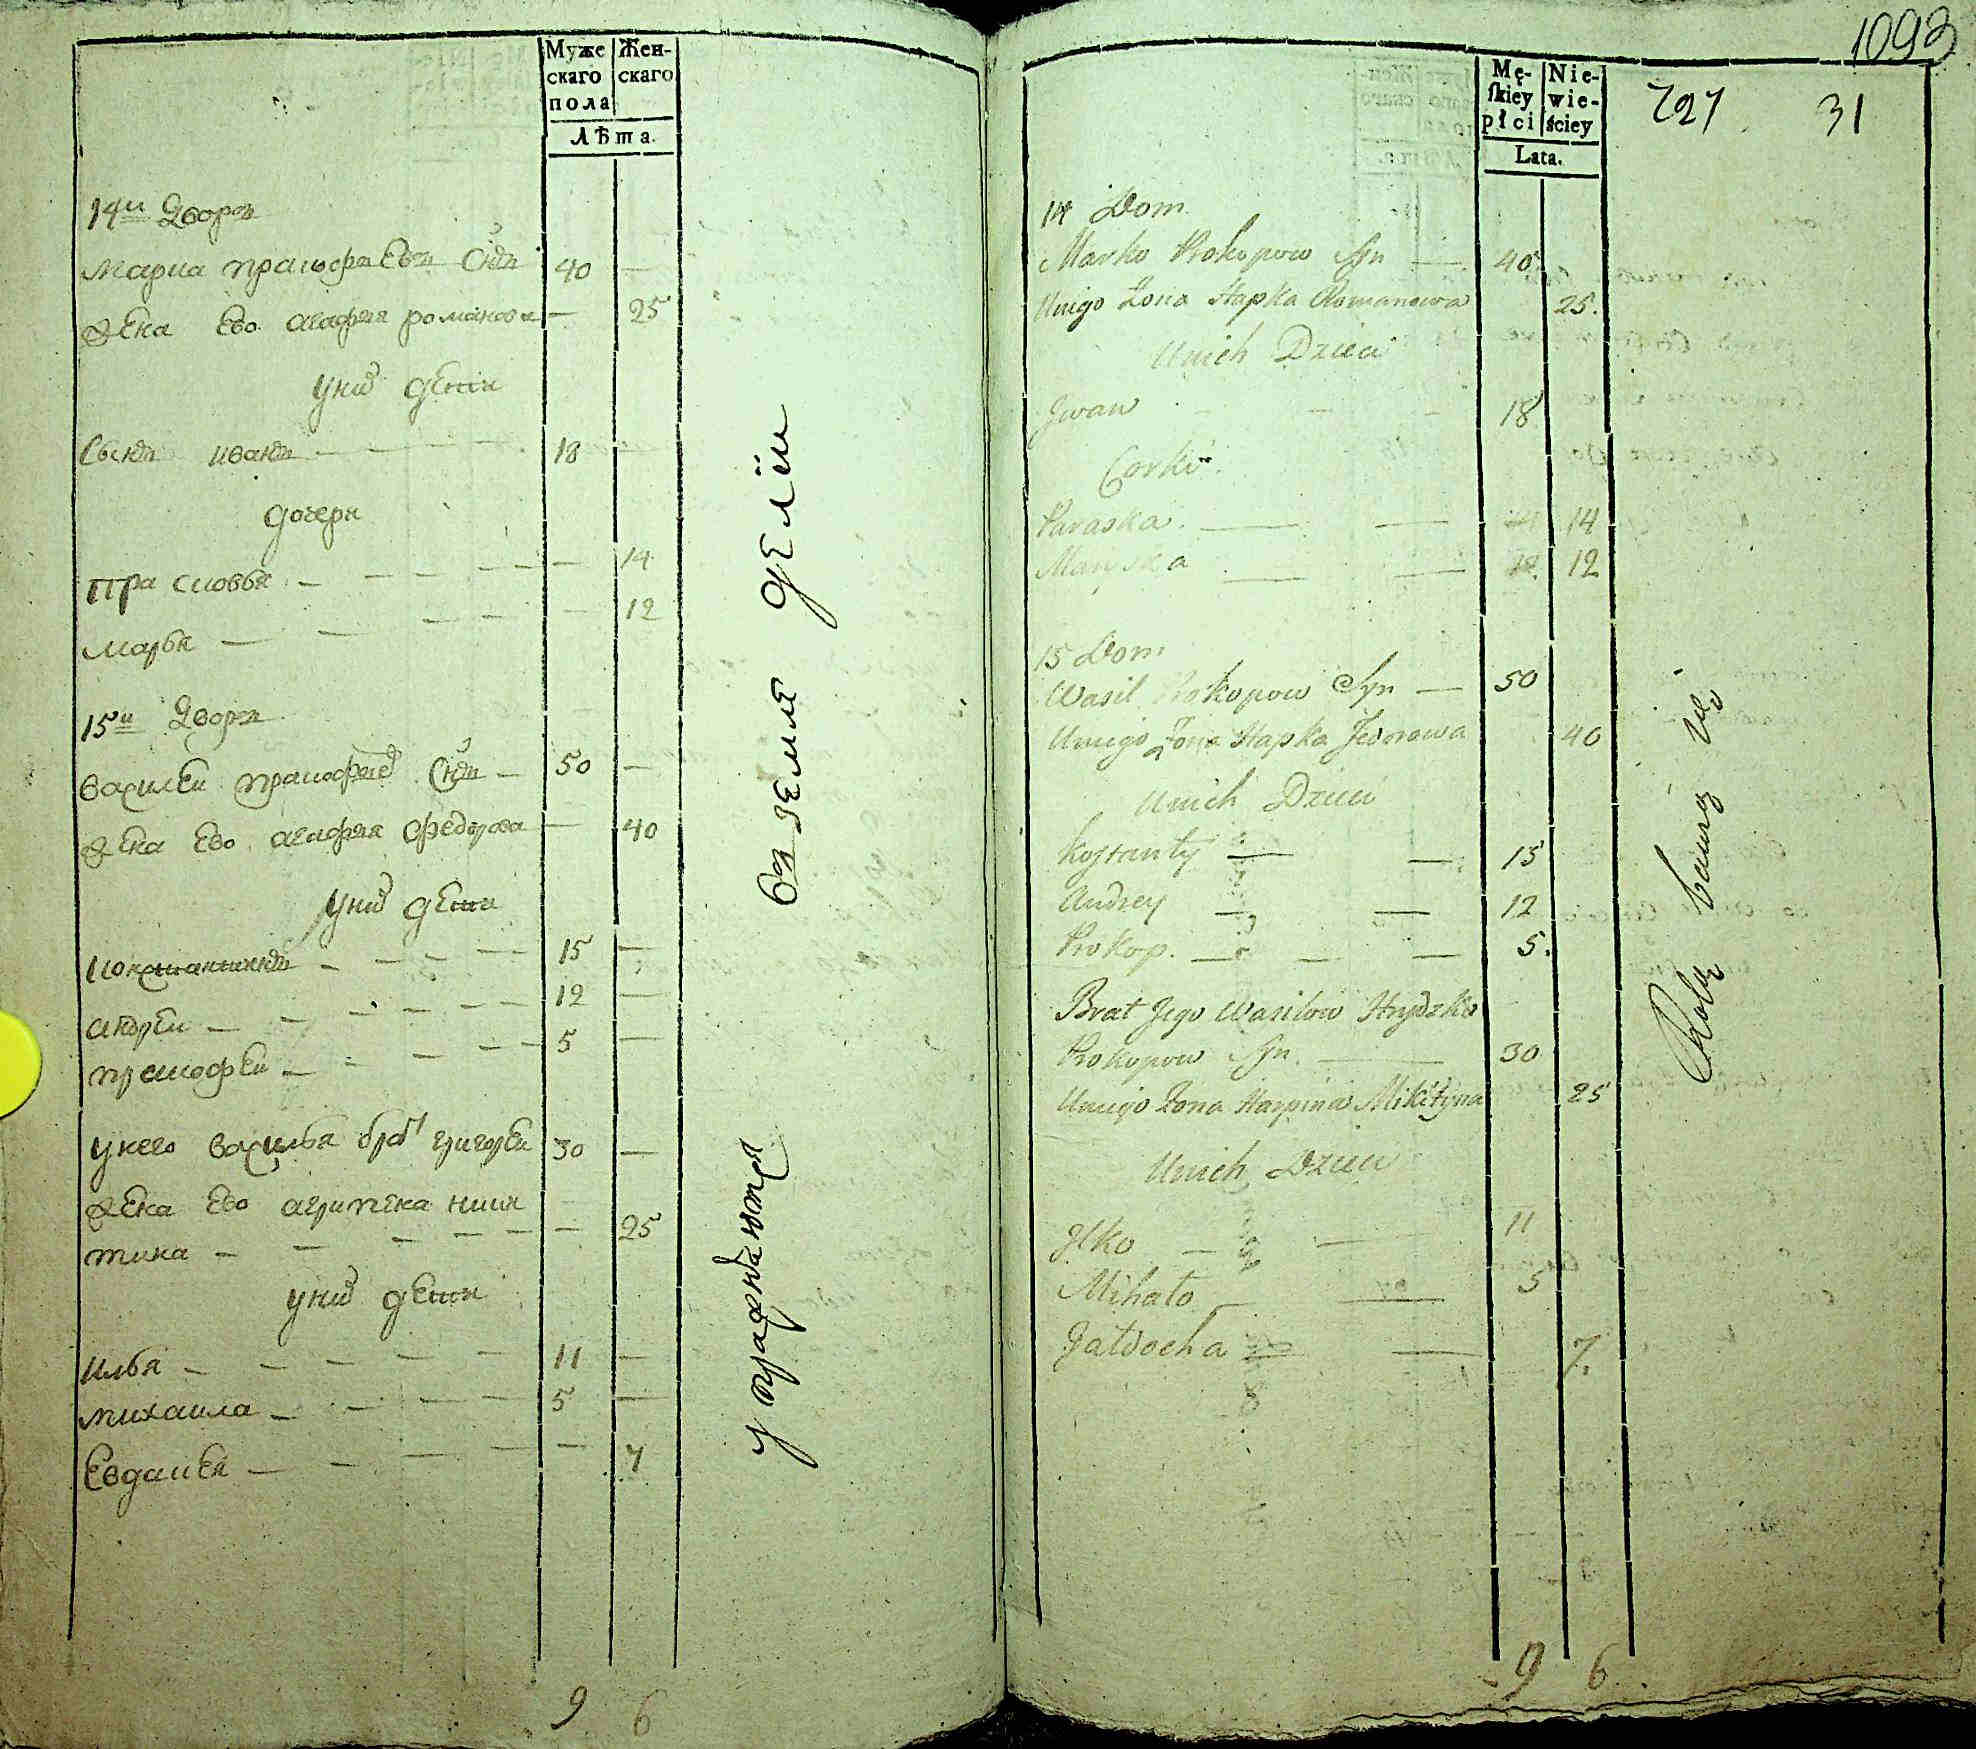 Муже Жен-
скаго скаго
пола
Лѣта.
14й Дворъ
Марка Пракофьевъ Снъ 40 —
Жена ево Агафья Романова — 25
У них дети
Сынъ Иванъ — 18 —
Дочери
Прасковья — 14
Марья — 12
15й Дворъ
Василей Пракофьев Снъ — 50 —
Жена ево Агафья Федорова — 40
У них дети
Константинъ — 15 —
Андрей — 12 —
Пракофей — 5 —
У него Василья брат Григорей 30 —
Жена ево Агрипена Ники
тина — 25
У них дети
Илья — 11 —
Михаила — 5 —
Евдакея — 7
9 6
в земле делии
упражняются
1093
Mę- Nie-
ſkiey wie-
płci ściey
Lata.
727 31
14 Dom
Marko Prokopow Syn — 40
Unigo Żona Hapka Romanowa 25.
Unich Dzieci
Jwan — 18
Corki
Paraska. — 14
Maryska — 12
15 Dom
Wasil Prokopow Syn — 50
Uniego Żona Hapka Fedorowa 40
Unich Dzieci
Kostanty — 15
Andrey — 12
Prokop. — 5.
Brat Jego Wasilow Hrydzko
Prokopow Syn. — 30
Uniego Żona Harpina Mikityna 25
Unich Dzieci
Jlko — 11
Mihało — 5
Jatdocha — 7.
9 6
Rolą bawią się